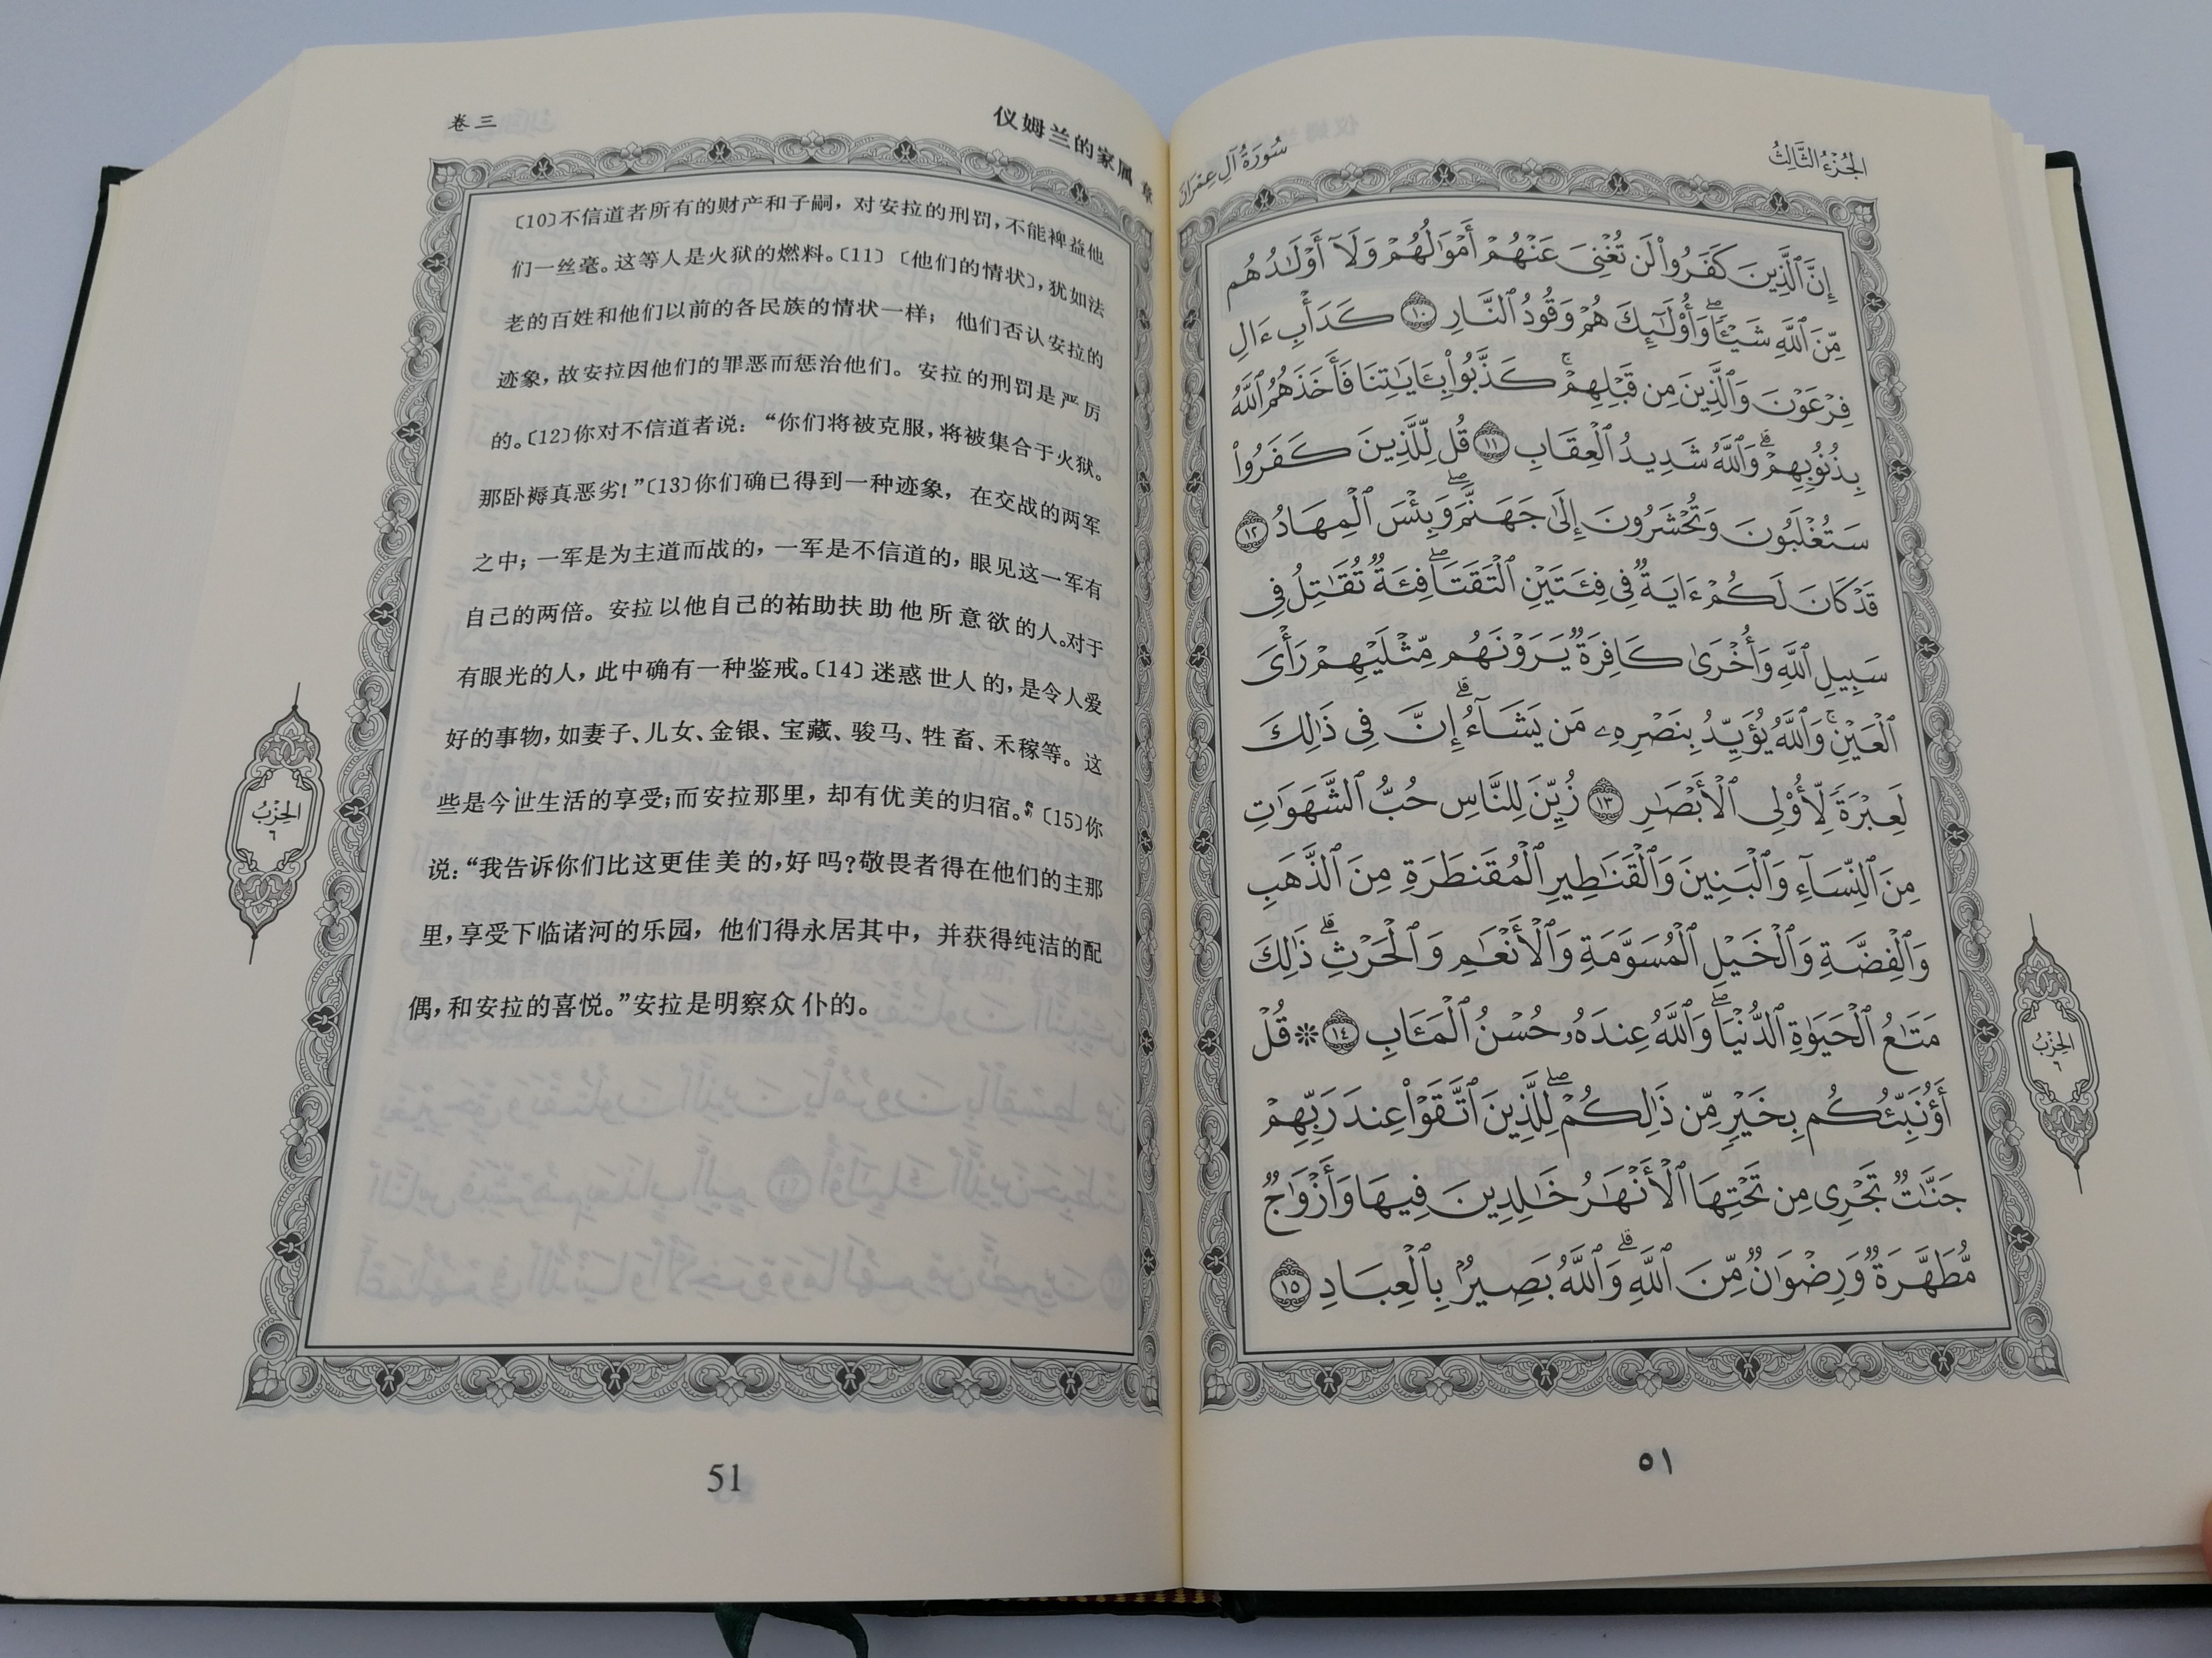 卷三
仪姆兰的家属 章
〔10〕不信道者所有的财产和子嗣，对安拉的刑罚，不能裨益他
们一丝毫。这等人是火狱的燃料。〔11〕〔他们的情状〕，犹如法
老的百姓和他们以前的各民族的情状一样；他们否认安拉的
迹象，故安拉因他们的罪恶而惩治他们。安拉的刑罚是严厉
的。〔12〕你对不信道者说：“你们将被克服，将被集合于火狱。
那卧褥真恶劣！”〔13〕你们确已得到一种迹象，在交战的两军
之中；一军是为主道而战的，一军是不信道的，眼见这一军有
自己的两倍。安拉以他自己的祐助扶助他所意欲的人。对于
有眼光的人，此中确有一种鉴戒。〔14〕迷惑世人的，是令人爱
好的事物，如妻子、儿女、金银、宝藏、骏马、牲畜、禾稼等。这
些是今世生活的享受；而安拉那里，却有优美的归宿。〔15〕你
说：“我告诉你们比这更佳美的，好吗？敬畏者得在他们的主那
里，享受下临诸河的乐园，他们得永居其中，并获得纯洁的配
偶，和安拉的喜悦。”安拉是明察众仆的。
الحِزْبُ
٦
51
الجُزْءُ الثَّالِثُ
سُورَةُ آلِ عِمْرَان
إِنَّ ٱلَّذِينَ كَفَرُوا۟ لَن تُغْنِىَ عَنْهُمْ أَمْوَٰلُهُمْ وَلَآ أَوْلَـٰدُهُم
مِّنَ ٱللَّهِ شَيْـًٔا ۖ وَأُو۟لَـٰٓئِكَ هُمْ وَقُودُ ٱلنَّارِ ١٠ كَدَأْبِ ءَالِ
فِرْعَوْنَ وَٱلَّذِينَ مِن قَبْلِهِمْ ۚ كَذَّبُوا۟ بِـَٔايَـٰتِنَا فَأَخَذَهُمُ ٱللَّهُ
بِذُنُوبِهِمْ ۗ وَٱللَّهُ شَدِيدُ ٱلْعِقَابِ ١١ قُل لِّلَّذِينَ كَفَرُوا۟
سَتُغْلَبُونَ وَتُحْشَرُونَ إِلَىٰ جَهَنَّمَ ۖ وَبِئْسَ ٱلْمِهَادُ ١٢
قَدْ كَانَ لَكُمْ ءَايَةٌ فِى فِئَتَيْنِ ٱلْتَقَتَا ۖ فِئَةٌ تُقَـٰتِلُ فِى
سَبِيلِ ٱللَّهِ وَأُخْرَىٰ كَافِرَةٌ يَرَوْنَهُم مِّثْلَيْهِمْ رَأْىَ
ٱلْعَيْنِ ۚ وَٱللَّهُ يُؤَيِّدُ بِنَصْرِهِۦ مَن يَشَآءُ ۗ إِنَّ فِى ذَٰلِكَ
لَعِبْرَةً لِّأُو۟لِى ٱلْأَبْصَـٰرِ ١٣ زُيِّنَ لِلنَّاسِ حُبُّ ٱلشَّهَوَٰتِ
مِنَ ٱلنِّسَآءِ وَٱلْبَنِينَ وَٱلْقَنَـٰطِيرِ ٱلْمُقَنطَرَةِ مِنَ ٱلذَّهَبِ
وَٱلْفِضَّةِ وَٱلْخَيْلِ ٱلْمُسَوَّمَةِ وَٱلْأَنْعَـٰمِ وَٱلْحَرْثِ ۗ ذَٰلِكَ
مَتَـٰعُ ٱلْحَيَوٰةِ ٱلدُّنْيَا ۖ وَٱللَّهُ عِندَهُۥ حُسْنُ ٱلْمَـَٔابِ ١٤ ۞ قُلْ
أَؤُنَبِّئُكُم بِخَيْرٍ مِّن ذَٰلِكُمْ ۚ لِلَّذِينَ ٱتَّقَوْا۟ عِندَ رَبِّهِمْ
جَنَّـٰتٌ تَجْرِى مِن تَحْتِهَا ٱلْأَنْهَـٰرُ خَـٰلِدِينَ فِيهَا وَأَزْوَٰجٌ
مُّطَهَّرَةٌ وَرِضْوَٰنٌ مِّنَ ٱللَّهِ ۗ وَٱللَّهُ بَصِيرٌۢ بِٱلْعِبَادِ ١٥
الحِزْبُ
٦
٥١